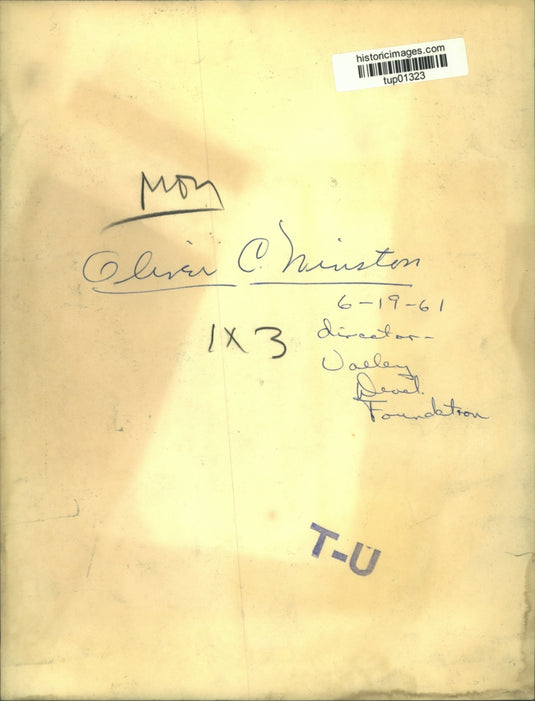 historicimages.com
tup01323
Mon
Oliver C. Winston
6-19-61
1X3
director-
Valley
Devel.
Foundation
T-U